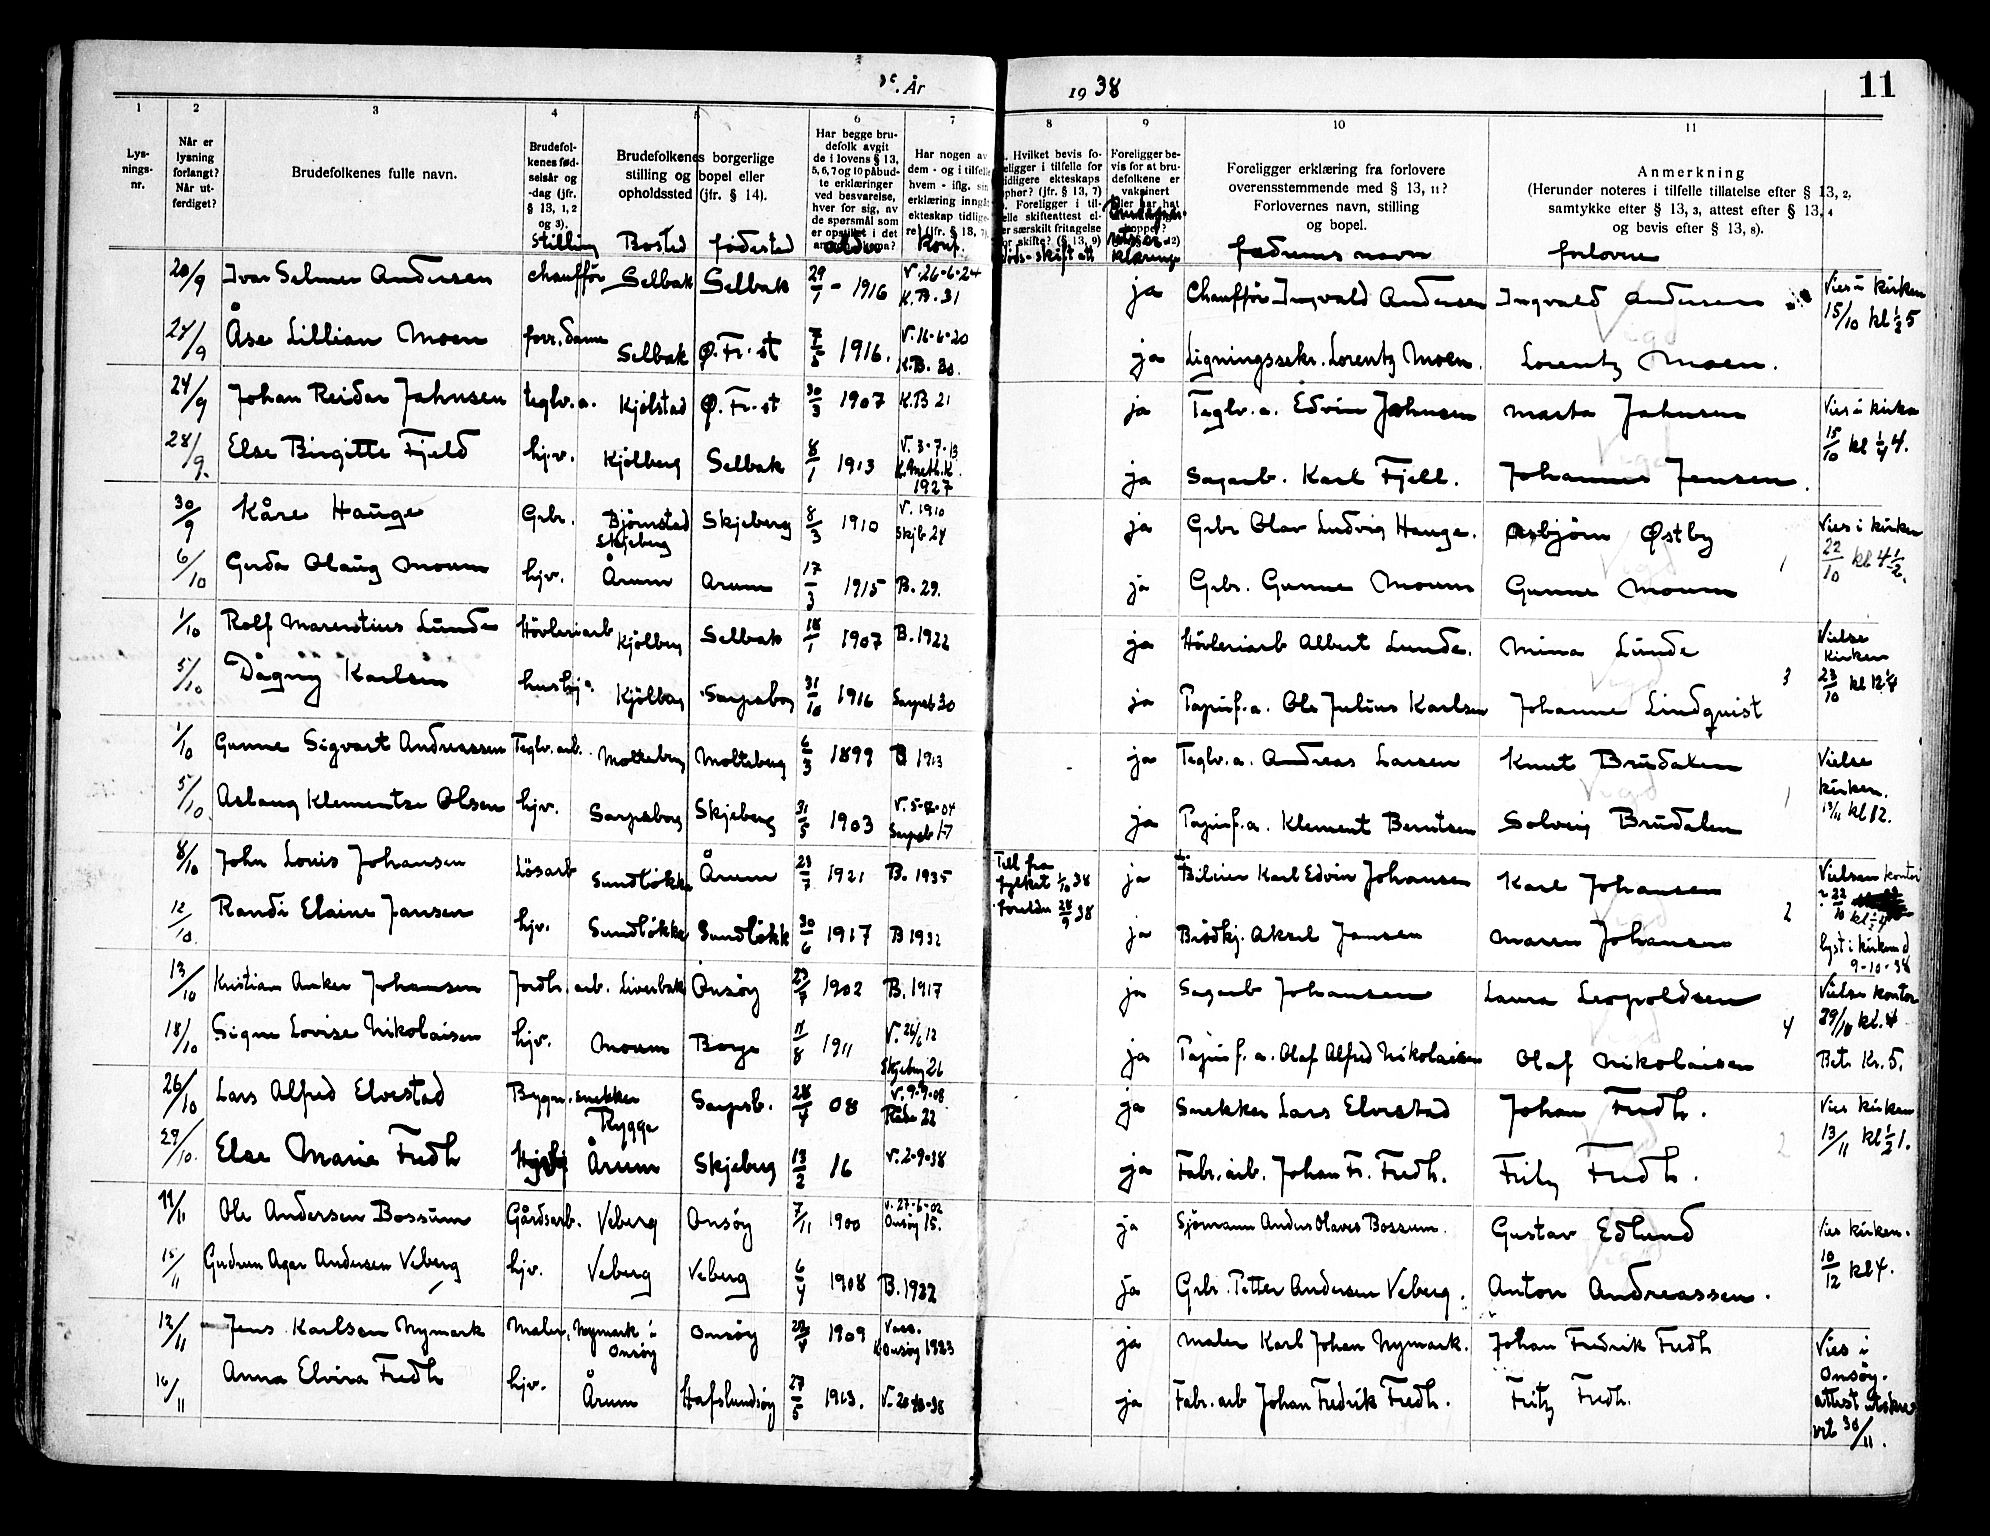 År 1938 11
1 2 3 4 5 6 7 8 9 10 11
Lys-
nings-
nr.
Når er
lysning
forlangt?
Når ut-
ferdiget?
Brudefolkenes fulle navn.
Brudefol-
kenes fød-
selsår og
-dag (jfr.
§ 13, 1, 2
og 3).
Stilling
Brudefolkenes borgerlige
stilling og bopel eller
opholdssted (jfr. § 14).
Bosted fødested
Har begge bru-
defolk avgit
de i lovens § 13,
5, 6, 7 og 10 påbud-
te erklæringer
ved besvarelse,
hver for sig, av
de spørsmål som
er opstillet i det
alder
Har nogen av
dem - og i tilfelle
hvem - iflg. sin
erklæring inngått
ekteskap tidlige-
re? (jfr. § 13, 7)
Konf.
Hvilket bevis fo-
religger i tilfelle for
tidligere ekteskaps
ophør? (jfr. § 13, 7)
Foreligger i til-
felle skifteattest el-
ler særskilt fritagelse
for skifte? (§ 13, 9)
Døds- skift att
Foreligger be-
vis for at bru-
defolkene er
vaksinert
eller har hatt
klæringe
Foreligger erklæring fra forlovere
overensstemmende med § 13, 11?
Forlovernes navn, stilling
og bopel.
fedrenes navn
Anmerkning
(Herunder noteres i tilfelle tillatelse efter § 13, 2,
samtykke efter § 13, 3, attest efter § 13, 4
og bevis efter § 13, 8).
forlovere
20/9 Ivar Selmer Andersen chauffør Selbak Selbak 29/1 - 1916 V. 26-6-24 K.B. 31 ja Chauffør Ingvald Andersen Ingvald Andersen Vies i kirken 15/10 kl ½ 5
24/9 Åse Lillian Moen forr.dame Selbak Ø. Fr. st 7/5 1916. V. 16-6-20 K.B. 30. ja Ligningssekr. Lorentz Moen. Lorentz Moen.
24/9 Johan Reidar Jahnsen teglv. a. Kjølstad Ø. Fr. st 30/3 1907 K.B 21 ja Teglv. a. Edvin Johnsen Marta Jahnsen Vies i kirka 15/10 kl ¼ 4.
28/9. Else Birgitte Fjeld hj.v. Kjølberg Selbak 8/1 1913 V. 3-7-13 K. Meth.K. 1927 ja Sagarb. Karl Fjell. Johannes Jensen.
30/9 Kåre Hauge Grbr. Bjørnstad Skjeberg Skjeberg 8/3 1910 V. 1910 Skjb 24 ja Grbr Olav Ludvig Hauge. Asbjørn Østby Vies i kirken 22/10 kl 4½.
6/10 Gerda Olaug Moum hjv. Årum Arum 17/3 1915 B. 29. ja Grbr. Gunne Moum Gunne Moum 1
1/10 Rolf Marentius Lunde Høvleriarb Kjølberg Selbak 18/1 1907 B. 1922 ja Høvleriarb Albert Lunde. Mina Lunde Vielse kirken 23/10 kl 12¼
5/10 Dagny Karlsen hushj. Kjølberg Sarpsborg 31/10 1916 Sarpsb 30 ja Papirf. a. Ole Julius Karlsen Johanne Lindquist 3
1/10 Gunne Sigvart Andreassen Teglv. arb. Molteberg Molteberg 6/3 1899 B 1913 ja Teglv. a. Andreas Larsen Knut Brudalen Vielse kirken. 13/11 kl 12.
5/10. Aslaug Klementze Olsen hjv. Sarpsborg Skjeberg 31/5 1903 V. 5-8-04 Sarpsb 17 ja Papirf. a. Klement Berntsen Solveig Brudalen 1
8/10 John Louis Johansen Løsarb Sundløkka Årum 23/7 1921 B. 1935 Till fra fylket 1/10 38 foreldre 28/9 38 ja Bileier Karl Edvin Johansen Karl Johansen Vielsen kontor 22/10 kl ½ 4
12/10. Randi Elaine Jansen hjv. Sundløkka Sundløkk 30/6 1917 B 1932 ja Brødkj. Aksel Jansen Maren Johansen 2 lyst i kirken d 9-10-38
13/10 Kristian Anker Johansen Jordbr. arb. Liverbak Onsøy 23/7 1902 B. 1917 ja Sagarb Johansen Laura Leopoldsen Vielse kontor 29/10 kl. 4
18/10 Signe Lovise Nikolaisen hjv. Moum Borge 11/8 1911 V. 26/6 12 Skjeberg 26 ja Papirf. a. Olaf Alfred Nikolaisen Olaf Nikolaisen 4 Bet. Kr. 5.
26/10 Lars Alfred Elvestad Bygn. snekker Rygge Sarpsb. 28/4 08 V. 9-9-08 Råde 22 ja Snekker Lars Elvestad Johan Fredh. Vies kirken 13/11 kl ½ 1.
29/10. Else Marie Fredh Årum Skjeberg 13/2 16 V. 2-9-38 ja Fabr. arb. Johan Fr. Fredh. Fritz Fredh. 2
11/11 Ole Andersen Bossum Gårdsarb. Veberg Onsøy 7/11 1900 V. 27-6-02 Onsøy 15. ja Sjømann Anders Olaves Bossum. Gustav Edlund Vies kirken. 10/12 kl 4.
15/11 Gudrun Agar Andersen Veberg hjv. Veberg Veberg 6/4 1908 B. 1922 ja Grbr. Petter Andersen Veberg. Anton Andreassen.
12/11 Jens Karlsen Nymark Maler, Nymark i Onsøy Onsøy 22/4 1909 Vacc. K Onsøy 1923 ja Maler Karl Johan Nymark. Johan Fredrik Fredh Vies i Onsøy.
16/11 Anna Elvira Fredh hjv. Årum Hafslundsøy 27/5 1913. ja Fabr. arb Johan Fredrik Fredh. Fritz Fredh. attest utskrevet 30/11.